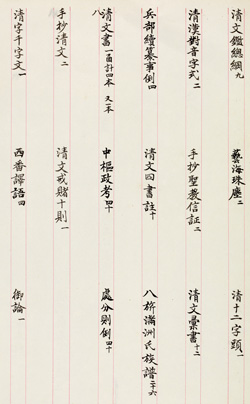 清文鑑總綱 九　藝海珠塵 二　清十二字頭 一
清漢對音字式 二　手抄聖教信証 二　清文彙書 十二
兵部續纂事例 四　清文四書註 十　八旂滿洲氏族譜 二十六
清文書 一函計四本 又一本 八　中樞政考 四十　處分則例 四十
手抄清文 二　清文戒賭十則 一
清字千字文 一　西番譯語 四　御論 一